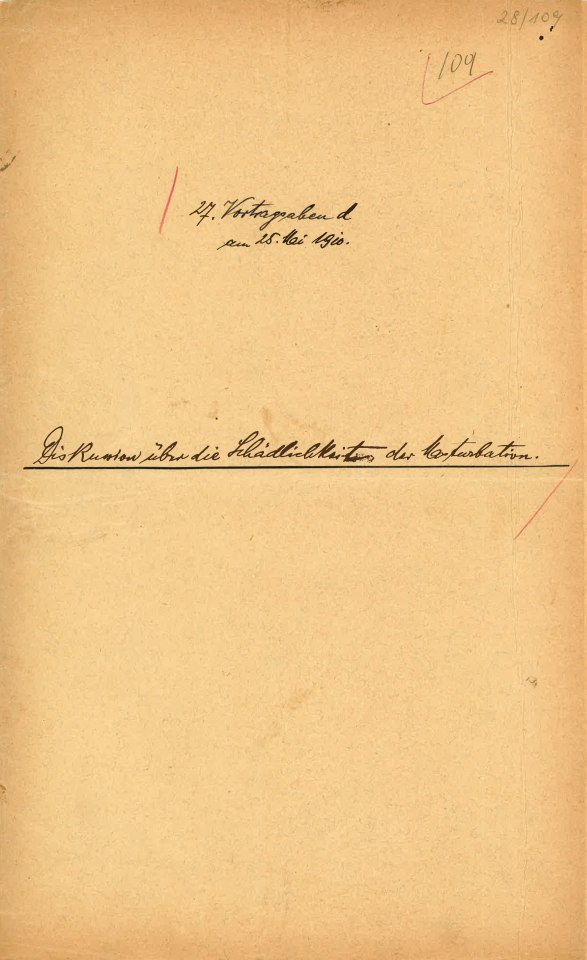 28/109
109
27. Vortragsabend
am 25. Mai 1910.
Diskussion über die Schädlichkeit der Masturbation.